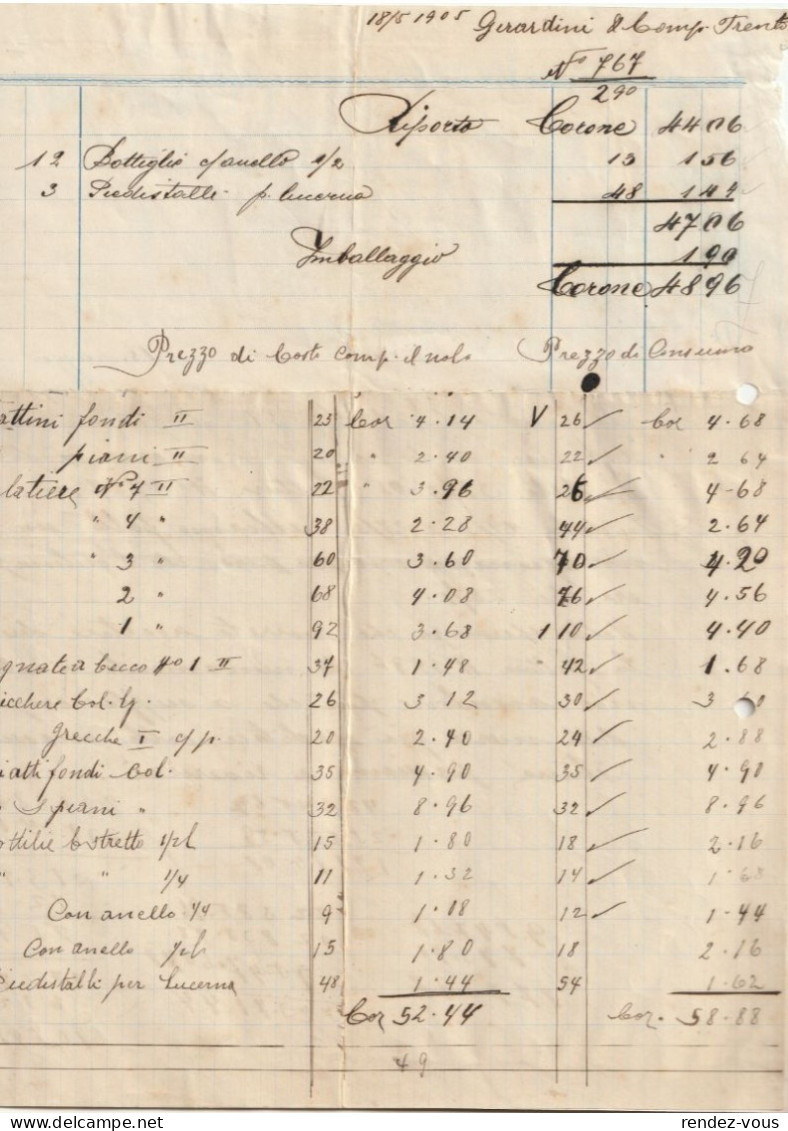 18/5 1905 Girardini & Comp. Trento
No 767
290
Riporto Corone 4406
12 Bottiglie c/anello 1/2 13 156
3 Piedistalli p. lucerna 48 144
4706
Imballaggio 190
Corone 4896
Prezzo di Costo comp. il nolo Prezzo di Consumo
attini fondi II 23 Cor 4.14 V 26 Cor 4.68
piani II 20 " 2.40 22 " 2 64
latiere No 4 II 22 " 3.96 26 4-68
" 4 " 38 2.28 44 2.64
" 3 " 60 3.60 70 4.20
2 " 68 4.08 76 4.56
1 " 92 3.68 110 4.40
gnate a becco No 1 II 37 1.48 42 1.68
icchere Col. 26 3 12 30 3 60
Grecche I c/p. 20 2.40 24 2.88
iatti fondi Col. 35 4.90 35 4.90
piani " 32 8.96 32 8.96
ottilie Cstretto 15 1.80 18 2.16
" " 1/4 11 1.32 14 1.68
Con anello 1/4 9 1.08 12 1.44
Con anello 15 1.80 18 2.16
Piedistalli per Lucerna 48 1.44 54 1.62
Cor 52.44 Cor. 58.88
49
rendez-vous